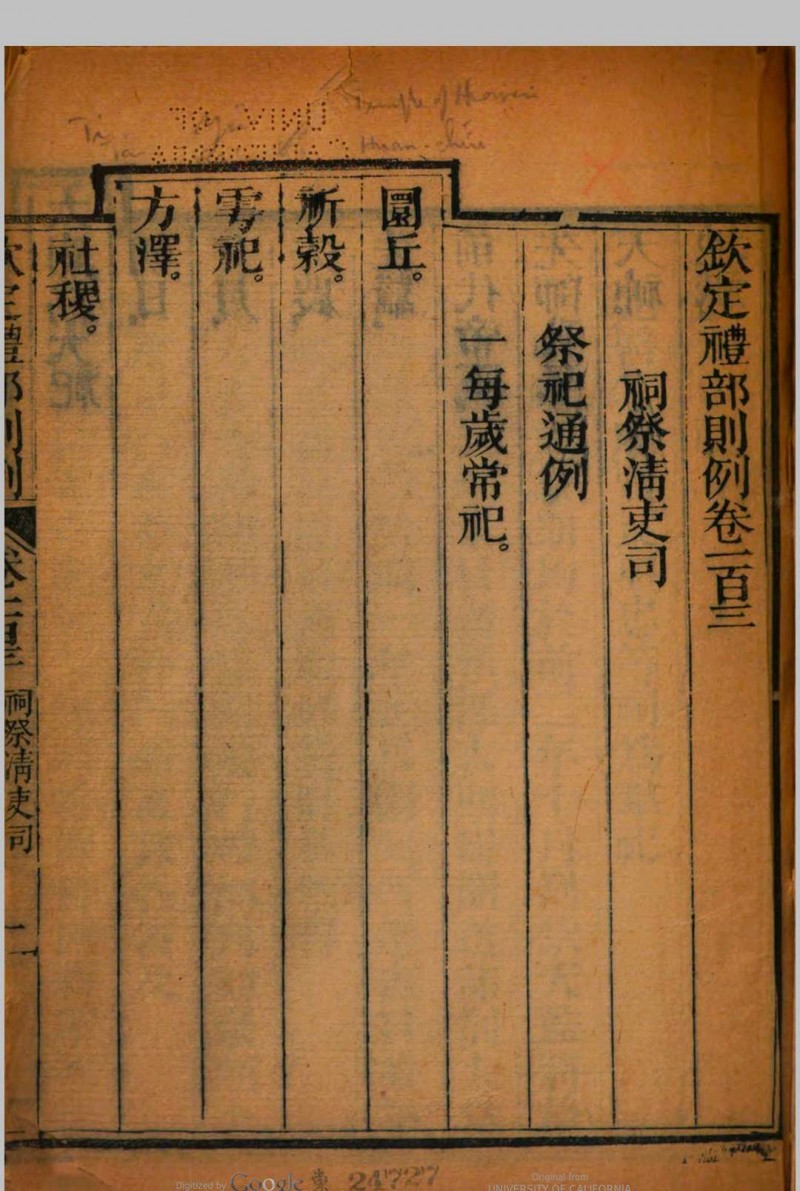 欽定禮部則例卷一百三
祠祭清吏司
祭祀通例
一每歲常祀。
圜丘。
祈穀。
雩祀。
方澤。
社稷。
欽定禮部則例 卷一百三 祠祭清吏司 一
UNIV. OF
CALIFORNIA
Temple of Heaven
Huan-chiu
Digitized by Google
東
Original from
UNIVERSITY OF CALIFORNIA